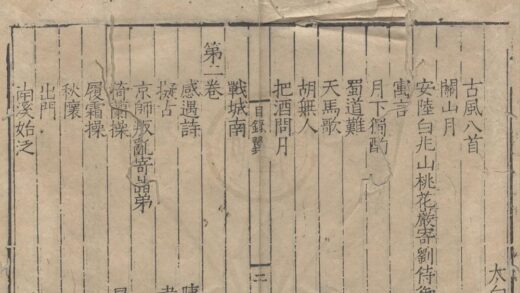 太
古風八首
關山月
安陸白兆山桃花巖寄劉侍御
寓言
月下獨酌
蜀道難
天馬歌
胡無人
把酒問月
目錄
二
戰城南
第二卷
感遇詩
擬古
京師叛亂寄諸弟
猗蘭操
履霜操
秋懷
出門
南溪始泛